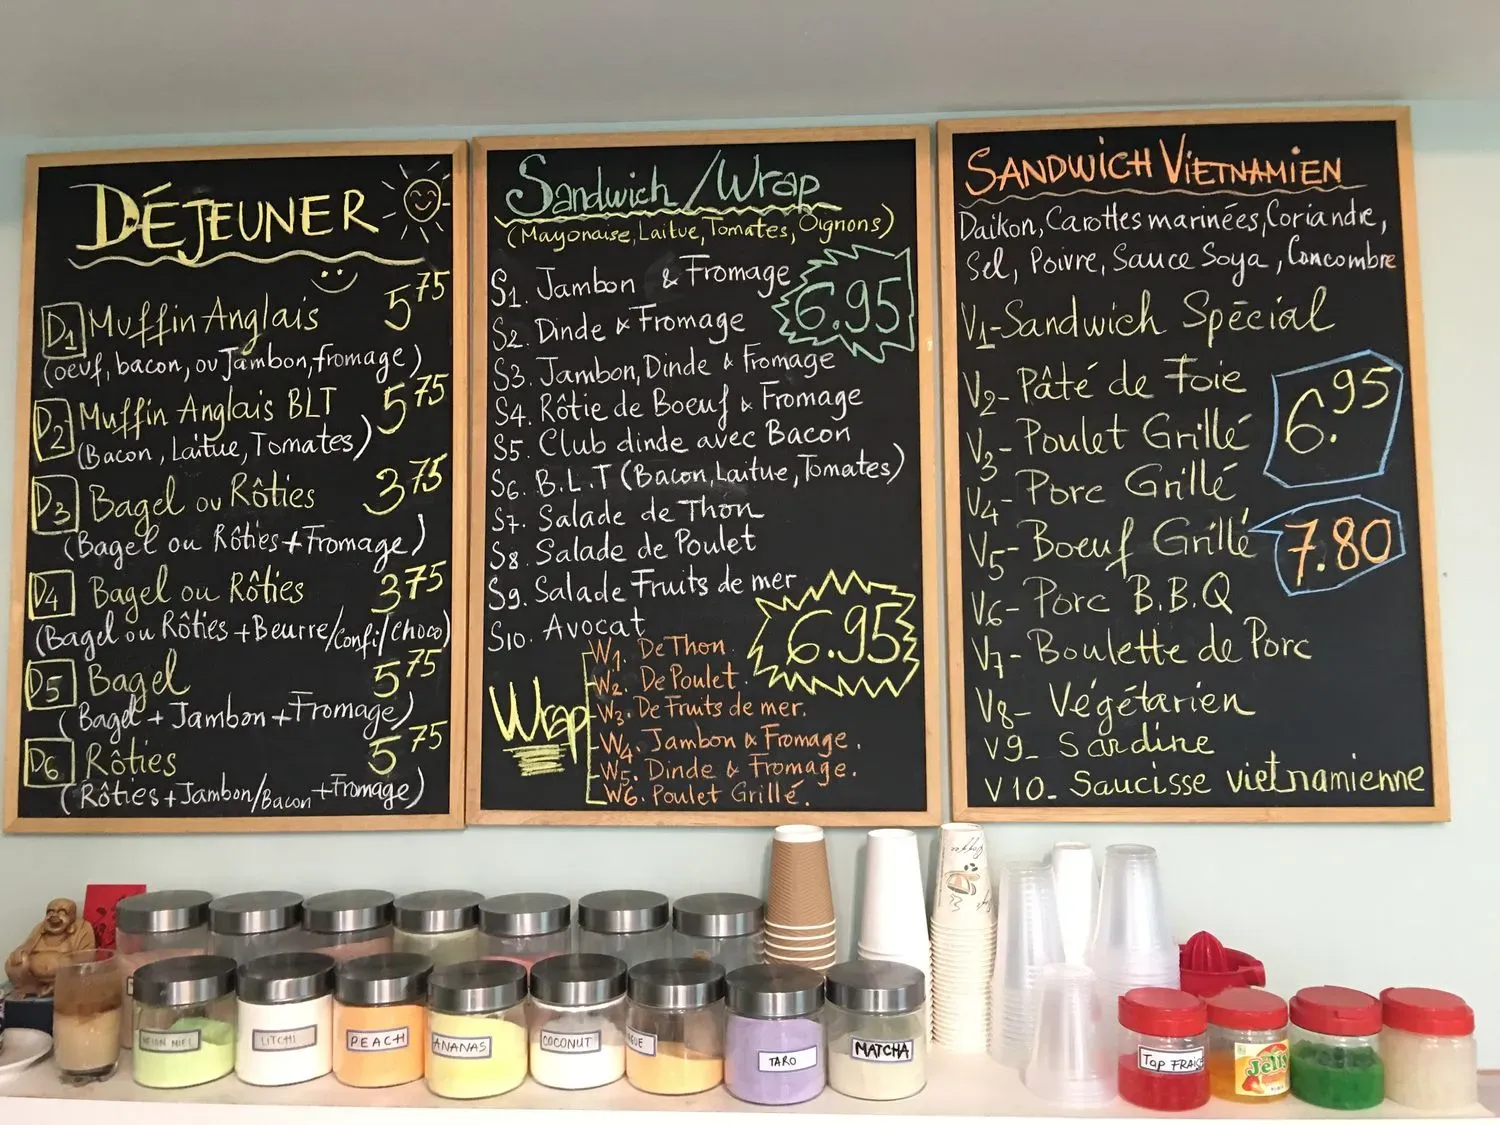 DÉJEUNER
D1 Muffin Anglais 5.75
(oeuf, bacon, ou Jambon, fromage)
D2 Muffin Anglais BLT 5.75
(Bacon, Laitue, Tomates)
D3 Bagel ou Rôties 3.75
(Bagel ou Rôties + Fromage)
D4 Bagel ou Rôties 3.75
(Bagel ou Rôties + Beurre/Confi/choco)
D5 Bagel 5.75
(Bagel + Jambon + Fromage)
D6 Rôties 5.75
(Rôties + Jambon/Bacon + Fromage)
Sandwich/Wrap
(Mayonaise, Laitue, Tomates, Oignons)
S1. Jambon & Fromage
6.95
S2. Dinde & Fromage
S3. Jambon, Dinde & Fromage
S4. Rôtie de Boeuf & Fromage
S5. Club dinde avec Bacon
S6. B.L.T (Bacon, Laitue, Tomates)
S7. Salade de Thon
S8. Salade de Poulet
S9. Salade Fruits de mer
S10. Avocat
6.95
Wrap
W1. De Thon.
W2. De Poulet.
W3. De Fruits de mer.
W4. Jambon & Fromage.
W5. Dinde & Fromage.
W6. Poulet Grillé.
SANDWICH VIETNAMIEN
Daikon, Carottes marinées, Coriandre,
Sel, Poivre, Sauce Soya, Concombre
V1-Sandwich Spécial
V2- Pâté de Foie
6.95
V3- Poulet Grillé
V4- Porc Grillé
V5- Boeuf Grillé 7.80
V6- Porc B.B.Q
V7- Boulette de Porc
V8- Végétarien
V9- Sardine
V10- Saucisse vietnamienne
MELON MIEL
LITCHI
PEACH
ANANAS
COCONUT
TARO
MATCHA
Top FRAISE
Jelly